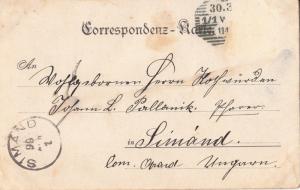 30.3
Correspondenz-Karte
An
Wohlgebornen Herrn Hochwürden
Johann L. Pallanik, Pfarrer
in Simánd.
Com. Arad Ungarn.
SIMÁND
99